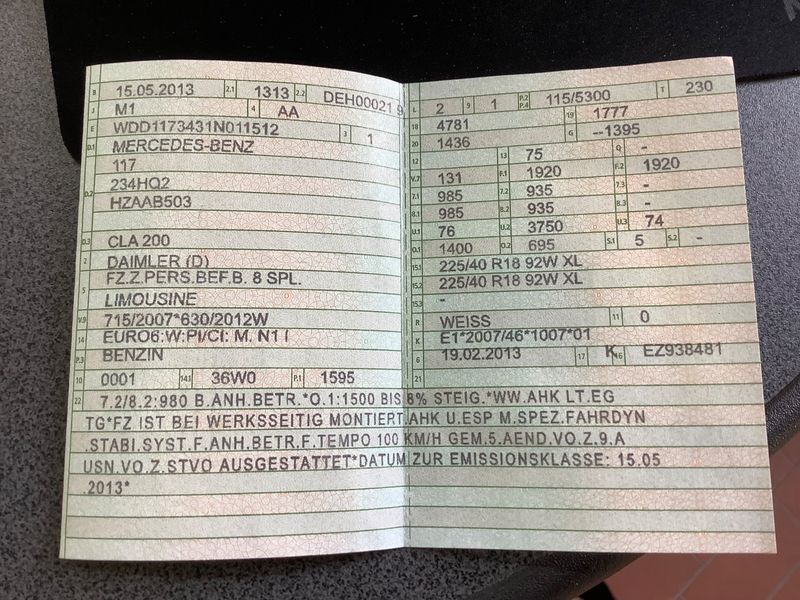 B 15.05.2013 2.1 1313 2.2 DEH00021 9
J M1 4 AA
E WDD1173431N011512 3 1
D.1 MERCEDES-BENZ
117
D.2 234HQ2
HZAAB503
D.3 CLA 200
2 DAIMLER (D)
5 FZ.Z.PERS.BEF.B. 8 SPL.
LIMOUSINE
V.9 715/2007*630/2012W
14 EURO6:W:PI/CI: M, N1 I
P.3 BENZIN
10 0001 14.1 36W0 P.1 1595
L 2 9 1 P.2 P.4 115/5300 T 230
18 4781 19 1777
20 1436 G --1395
12 13 75 Q -
V.7 131 F.1 1920 F.2 1920
7.1 985 7.2 935 7.3 -
8.1 985 8.2 935 8.3 -
U.1 76 U.2 3750 U.3 74
O.1 1400 O.2 695 S.1 5 S.2 -
15.1 225/40 R18 92W XL
15.2 225/40 R18 92W XL
15.3 -
R WEISS 11 0
K E1*2007/46*1007*01
6 19.02.2013 17 K 16 EZ938481
21
22 7.2/8.2:980 B.ANH.BETR.*O.1:1500 BIS 8% STEIG.*WW.AHK LT.EG
TG*FZ IST BEI WERKSSEITIG MONTIERT.AHK U.ESP M.SPEZ.FAHRDYN
.STABI.SYST.F.ANH.BETR.F.TEMPO 100 KM/H GEM.5.AEND.VO.Z.9.A
USN.VO.Z.STVO AUSGESTATTET*DATUM ZUR EMISSIONSKLASSE: 15.05
.2013*